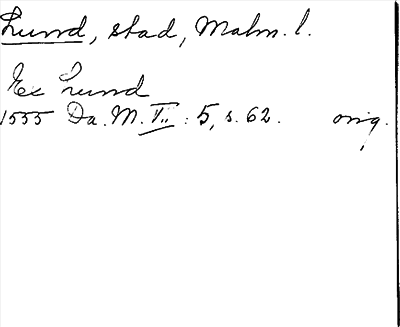 Lund, stad, Malm. l.
Ex Lund
1555 Da. M. II : 5, s. 62. orig.